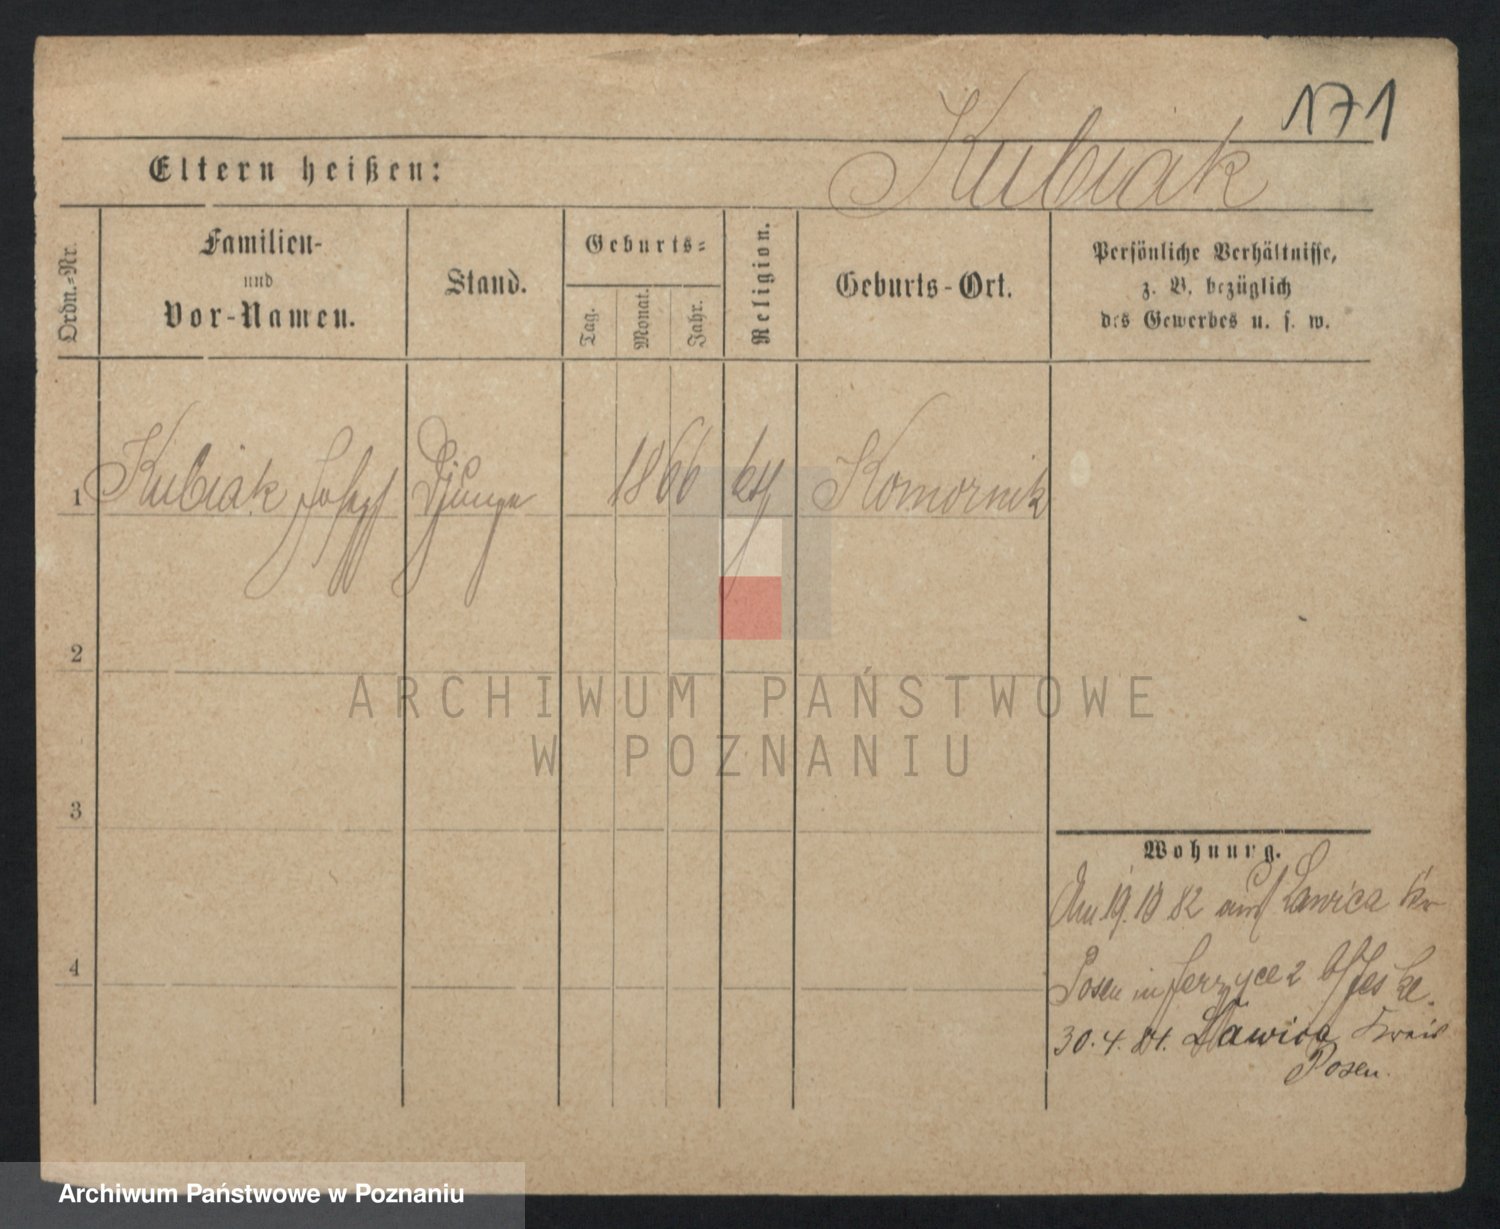 171
Kubiak
Eltern heißen:
Ordn.-Nr.
Familien-
und
Vor-Namen.
Stand.
Geburts-
Tag.
Monat.
Jahr.
Religion.
Geburts-Ort.
Persönliche Verhältnisse,
z. B. bezüglich
des Gewerbes u. s. w.
1 Kubiak Joseph 1866 kth Komornik
2
ARCHIWUM PAŃSTWOWE
W POZNANIU
3
Wohnung.
Am 19.10 82 aus Lawica Kr
4
Posen in Jerzyce 2 b/ Jeske.
30.4.84. Lawica Kreis
Posen.
Archiwum Państwowe w Poznaniu